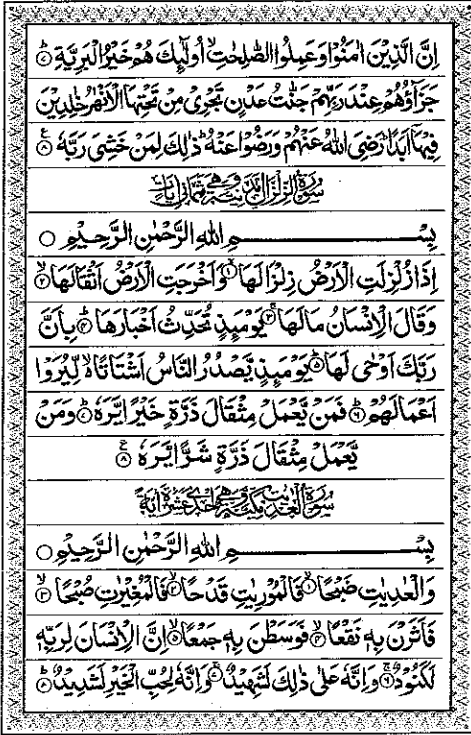 اِنَّ الَّذِيْنَ اٰمَنُوْا وَعَمِلُوا الصّٰلِحٰتِ ۙ اُولٰٓئِكَ هُمْ خَيْرُ الْبَرِيَّةِ ؕ۷
جَزَآؤُهُمْ عِنْدَ رَبِّهِمْ جَنّٰتُ عَدْنٍ تَجْرِيْ مِنْ تَحْتِهَا الْاَنْهٰرُ خٰلِدِيْنَ
فِيْهَاۤ اَبَدًا ؕ رَضِيَ اللّٰهُ عَنْهُمْ وَرَضُوْا عَنْهُ ؕ ذٰلِكَ لِمَنْ خَشِيَ رَبَّهٗ ۸
سُوْرَةُ الزِّلْزَالِ مَدَنِيَّةٌ وَّهِيَ ثَمَانِيْ اٰيَاتٍ
بِسْمِ اللّٰهِ الرَّحْمٰنِ الرَّحِيْمِ ○
اِذَا زُلْزِلَتِ الْاَرْضُ زِلْزَالَهَا ۙ۱ وَاَخْرَجَتِ الْاَرْضُ اَثْقَالَهَا ۙ۲
وَقَالَ الْاِنْسَانُ مَا لَهَا ۚ۳ يَوْمَئِذٍ تُحَدِّثُ اَخْبَارَهَا ۙ۴ بِاَنَّ
رَبَّكَ اَوْحٰى لَهَا ؕ۵ يَوْمَئِذٍ يَّصْدُرُ النَّاسُ اَشْتَاتًا ۙ۬ لِّيُرَوْا
اَعْمَالَهُمْ ؕ۶ فَمَنْ يَّعْمَلْ مِثْقَالَ ذَرَّةٍ خَيْرًا يَّرَهٗ ؕ۷ وَمَنْ
يَّعْمَلْ مِثْقَالَ ذَرَّةٍ شَرًّا يَّرَهٗ ۸
سُوْرَةُ الْعٰدِيٰتِ مَكِّيَّةٌ وَّهِيَ اِحْدٰى عَشَرَةَ اٰيَةً
بِسْمِ اللّٰهِ الرَّحْمٰنِ الرَّحِيْمِ ○
وَالْعٰدِيٰتِ ضَبْحًا ۙ۱ فَالْمُوْرِيٰتِ قَدْحًا ۙ۲ فَالْمُغِيْرٰتِ صُبْحًا ۙ۳
فَاَثَرْنَ بِهٖ نَقْعًا ۙ۴ فَوَسَطْنَ بِهٖ جَمْعًا ۙ۵ اِنَّ الْاِنْسَانَ لِرَبِّهٖ
لَكَنُوْدٌ ۚ۶ وَاِنَّهٗ عَلٰى ذٰلِكَ لَشَهِيْدٌ ۚ۷ وَاِنَّهٗ لِحُبِّ الْخَيْرِ لَشَدِيْدٌ ؕ۸